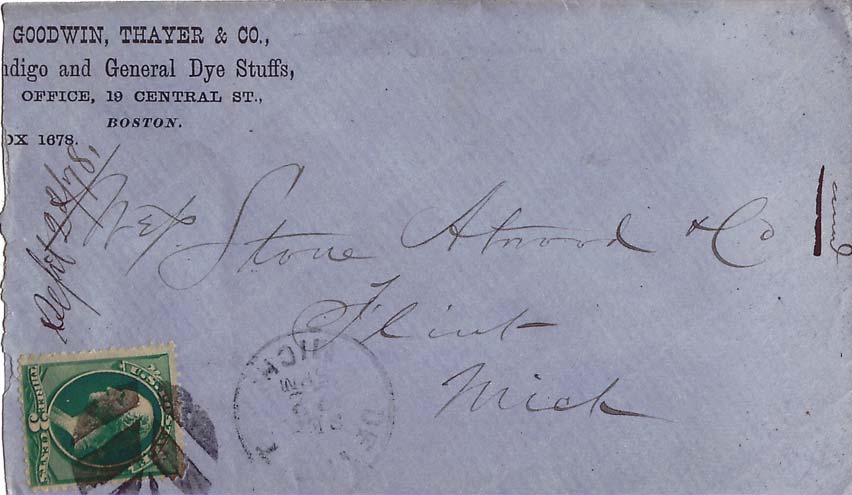 GOODWIN, THAYER & CO.,
ndigo and General Dye Stuffs,
OFFICE, 19 CENTRAL ST.,
BOSTON.
OX 1678.
Sept 28/78.
Stone Atwood & Co
Flint
Mich
MICH
DE